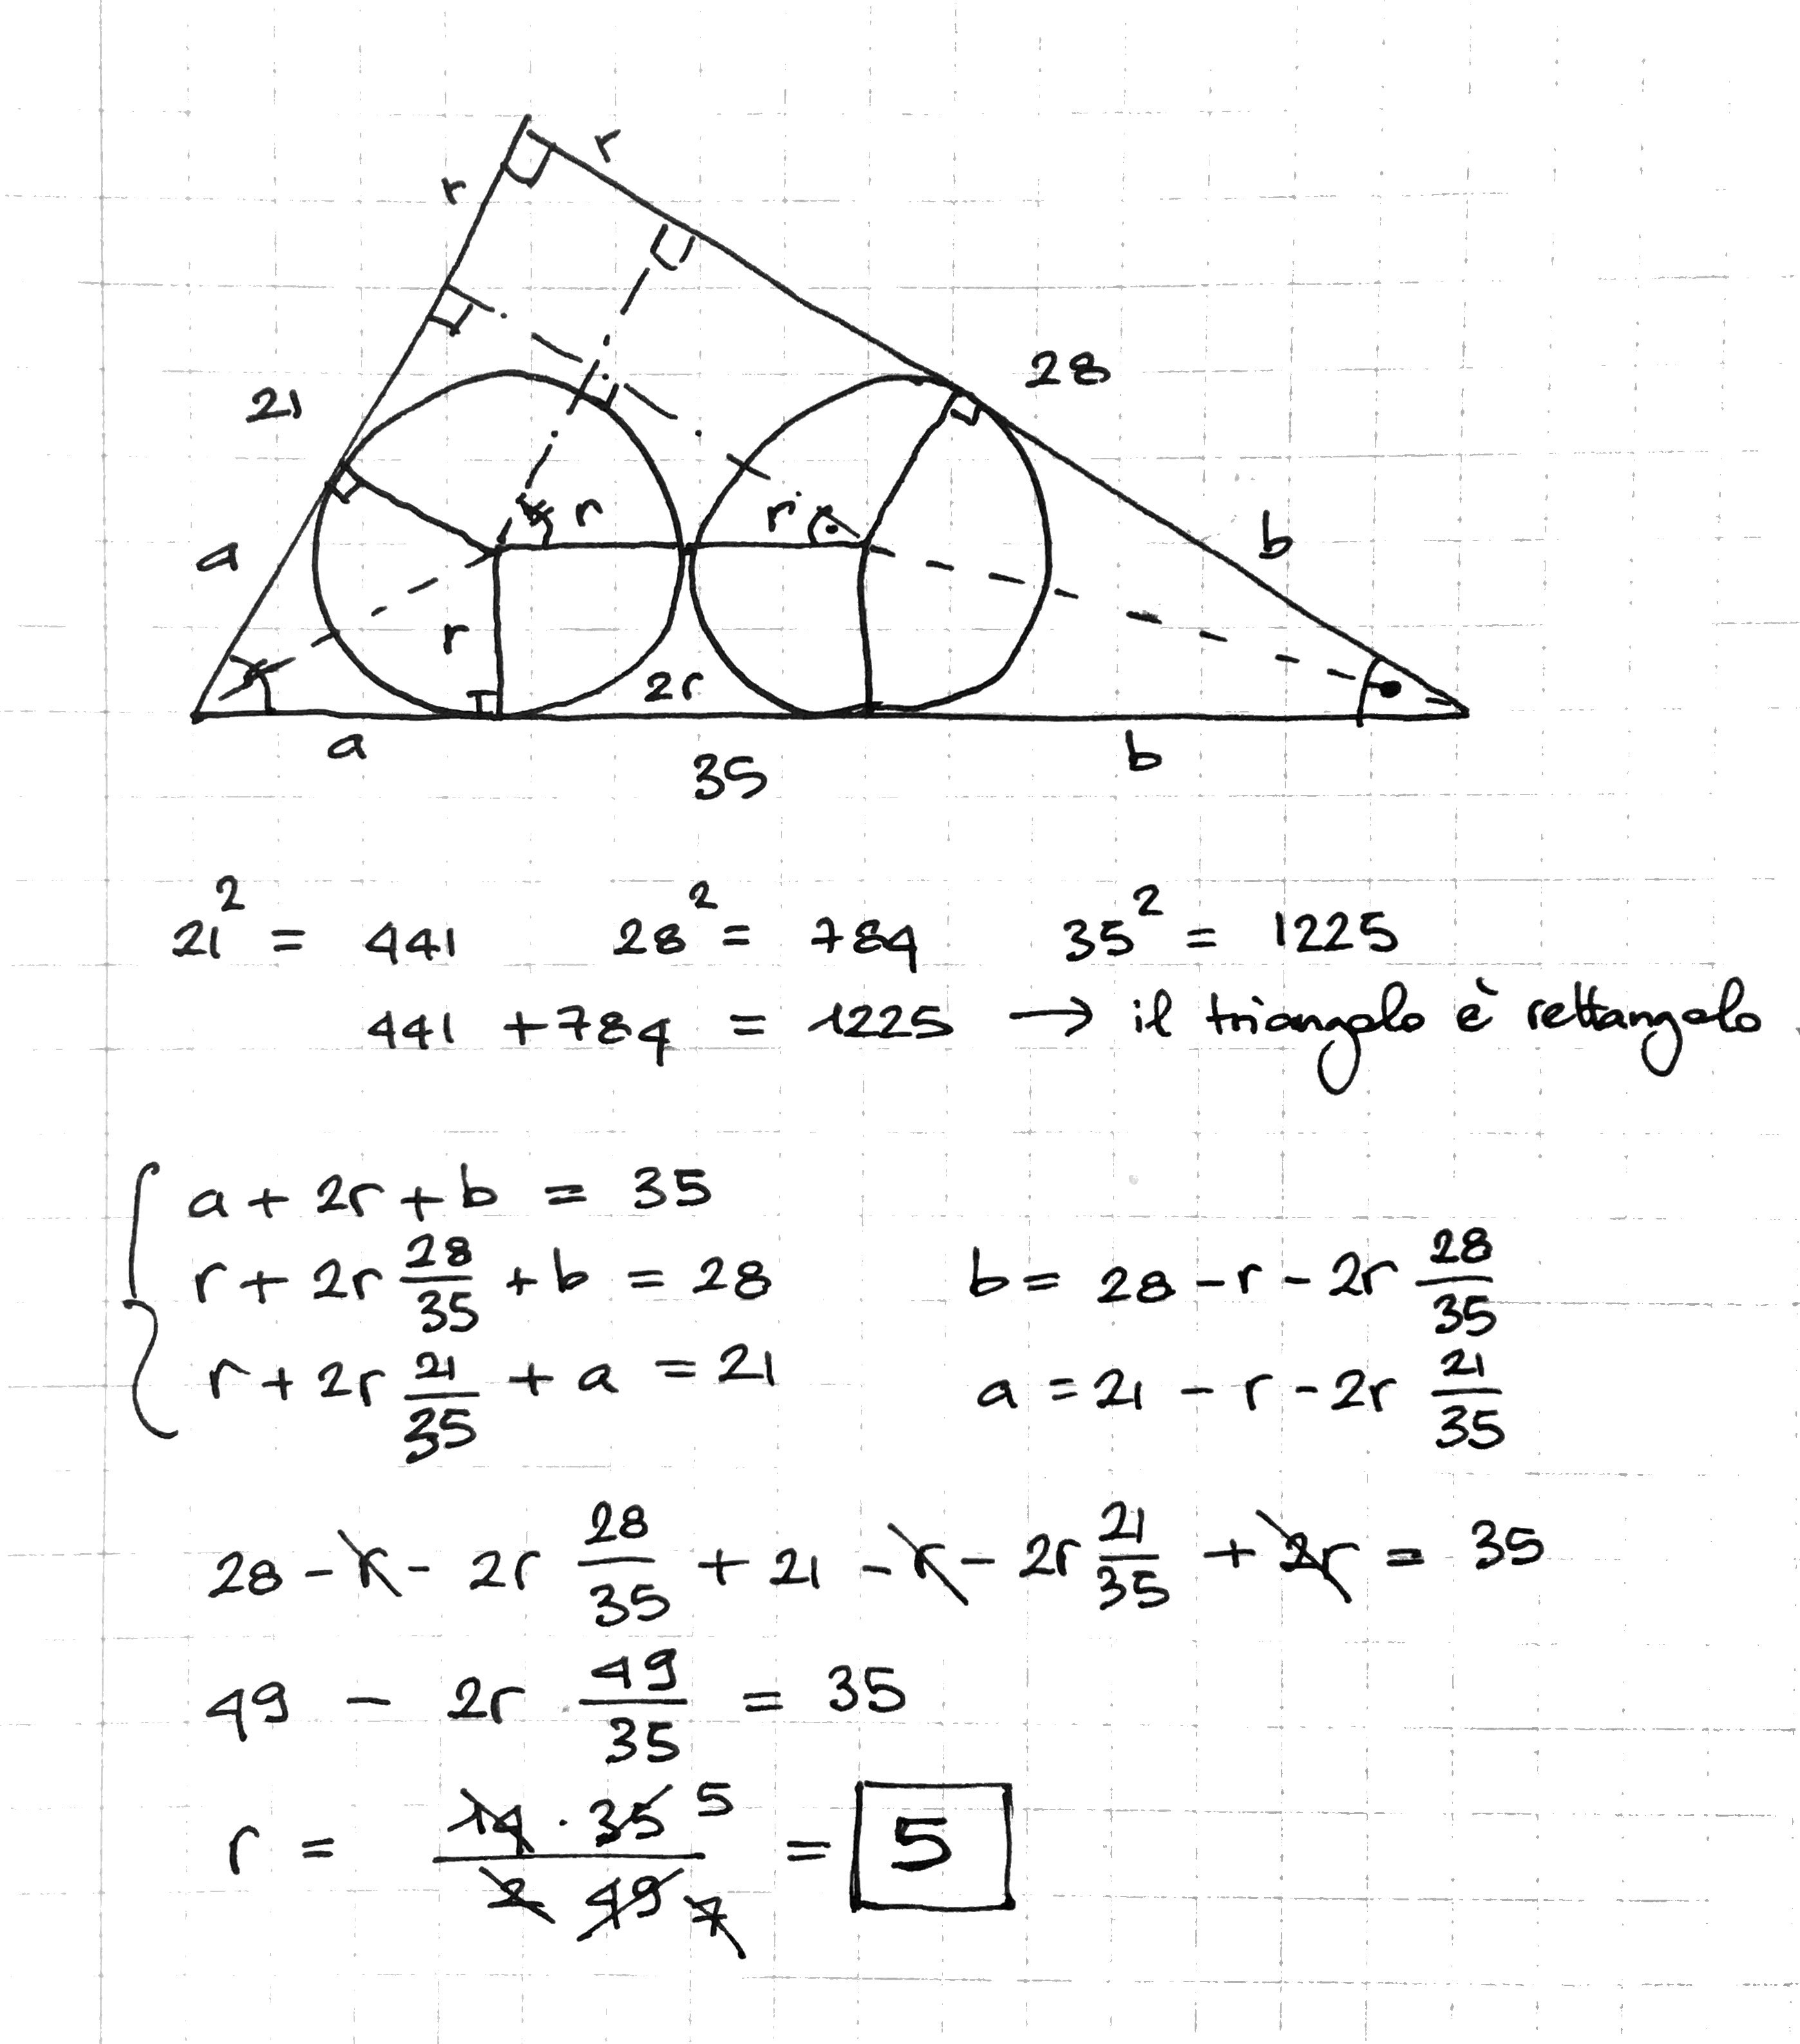 r
r
21
28
r
r
a
b
r
2r
a
b
35
21² = 441 28² = 784 35² = 1225
441 + 784 = 1225 → il triangolo è rettangolo
a + 2r + b = 35
r + 2r 28/35 + b = 28 b = 28 - r - 2r 28/35
r + 2r 21/35 + a = 21 a = 21 - r - 2r 21/35
28 - r - 2r 28/35 + 21 - r - 2r 21/35 + 2r = 35
49 - 2r · 49/35 = 35
r = 14 · 35 5 / 2 49 7 = 5